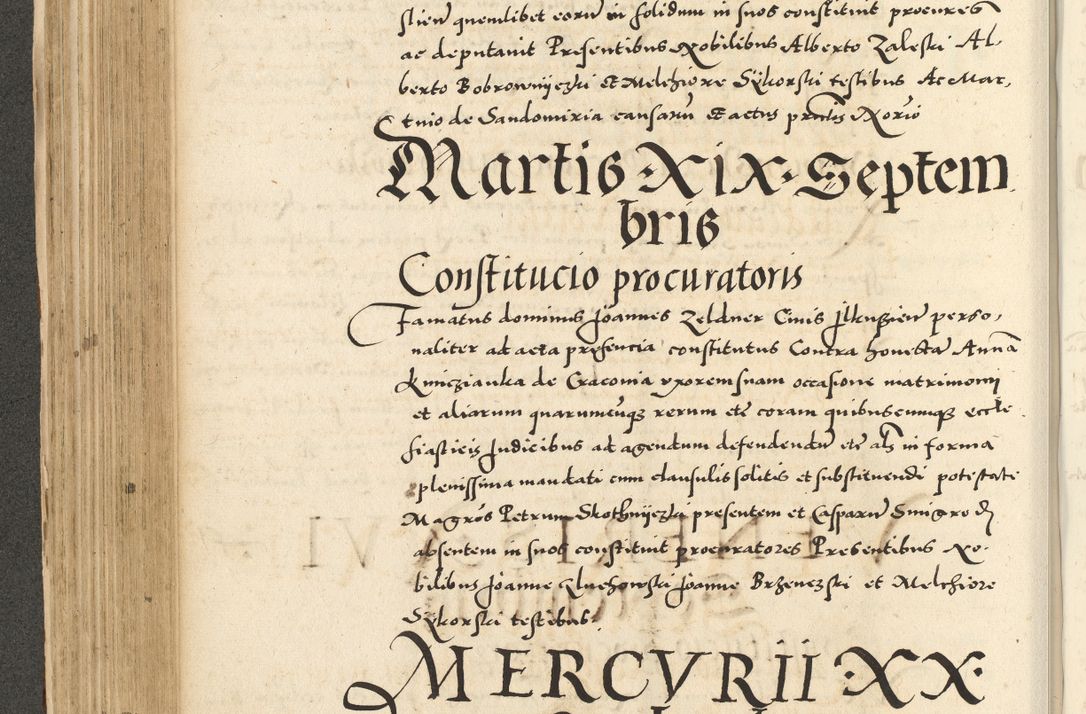 stien quemlibet eorum in solidum in suos constituit procures
ac deputavit Presentibus Nobilibus Alberto Zaleski Al-
berto Bobrownijczki et Melchiore Sijkorski testibus Ac Mar-
tino de Sandomiria causarum et actus pntis Norio
Martis XIX Septem
bris
Constitucio procuratoris
Famatus dominus Joannes Zeldner Civis Jlkusien perso-
naliter ad acta presencia constitutus Contra honesta Anna
Kmiczianka de Cracovia uxorem suam occasione matrimonij
et aliarum quarumcunque rerum etc coram quibuscumque eccle
siasticis Judicibus ad agendum defendendu etc als in forma
plenissima mandati cum clausulis solitis et substituendi potestate
Magros Petrum Skothnijczki presentem et Casparum
absentem in suos constituit procuratores Presentibus No-
bilibus Joanne Joanne Brzenczski et Melchiore
Sijkorski testibus
MERCVRII XX